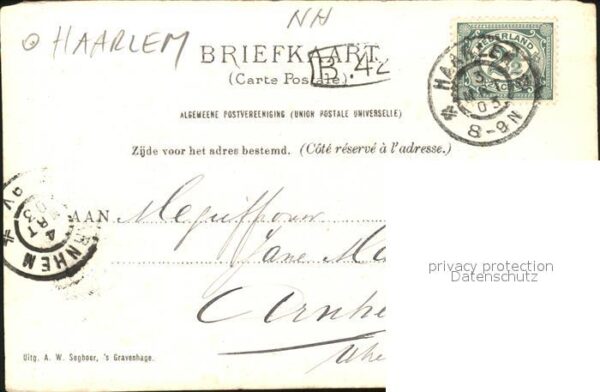 NH
HAARLEM
BRIEFKAART
(Carte Postale)
B.42
NEDERLAND
HAARLEM
3
03
8-9N
ALGEMEENE POSTVEREENIGING (UNION POSTALE UNIVERSELLE)
Zijde voor het adres bestemd. (Côté réservé à l'adresse.)
ARNHEM
4
MRT
03
AAN Mejuffrouw
Jane
Arnhe
privacy protection
Datenschutz
Uitg. A. W. Segboer, 's Gravenhage.